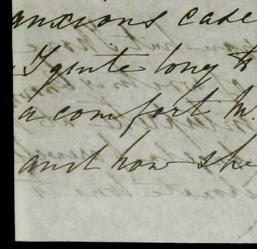 anxious case
I quite long to
a comfort M
and how she